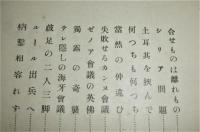 合せものは離れもの
シリア問題
土耳其を挾んで
何つちも何つち
當然の仲違ひ
失敗せるカンヌ會議
ゼノア會議の英佛
獨露の奇襲
テレ隱しの海牙會議
跛足の二人三脚
ルール出兵へ
柄鑿相容れず